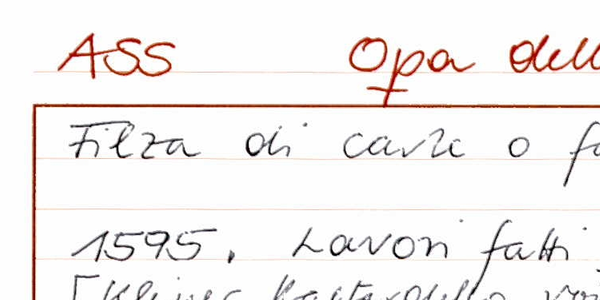 ASS Opa dell
Filza di carte o f
1595. Lavori fatti
[Kleiner